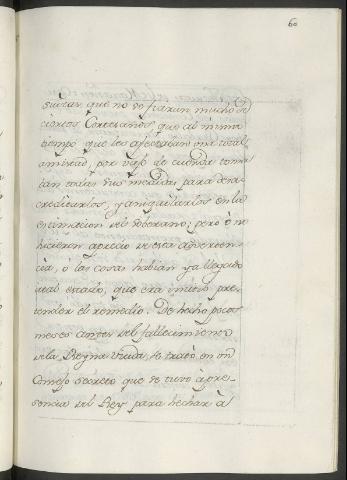 60
suitas, que no se fiaran mucho de
ciertos Cortesanos, que al mismo
tiempo que les afectaban una total
amistad, por vajo de cuerda toma-
ban todas sus medidas para desa-
creditarlos, y aniquilarlos en la
estimacion del soberano; pero ò no
hicieron aprecio de esta advertencia
cia, ó las cosas habian ya llegado
à tal estado, que era inutil pre-
tender el remedio. De hecho pocos
meses antes del fallecimiento
de la Reyna Viuda, se trató en un
Consejo secreto que se tuvo à pre-
sencia del Rey para hechar à